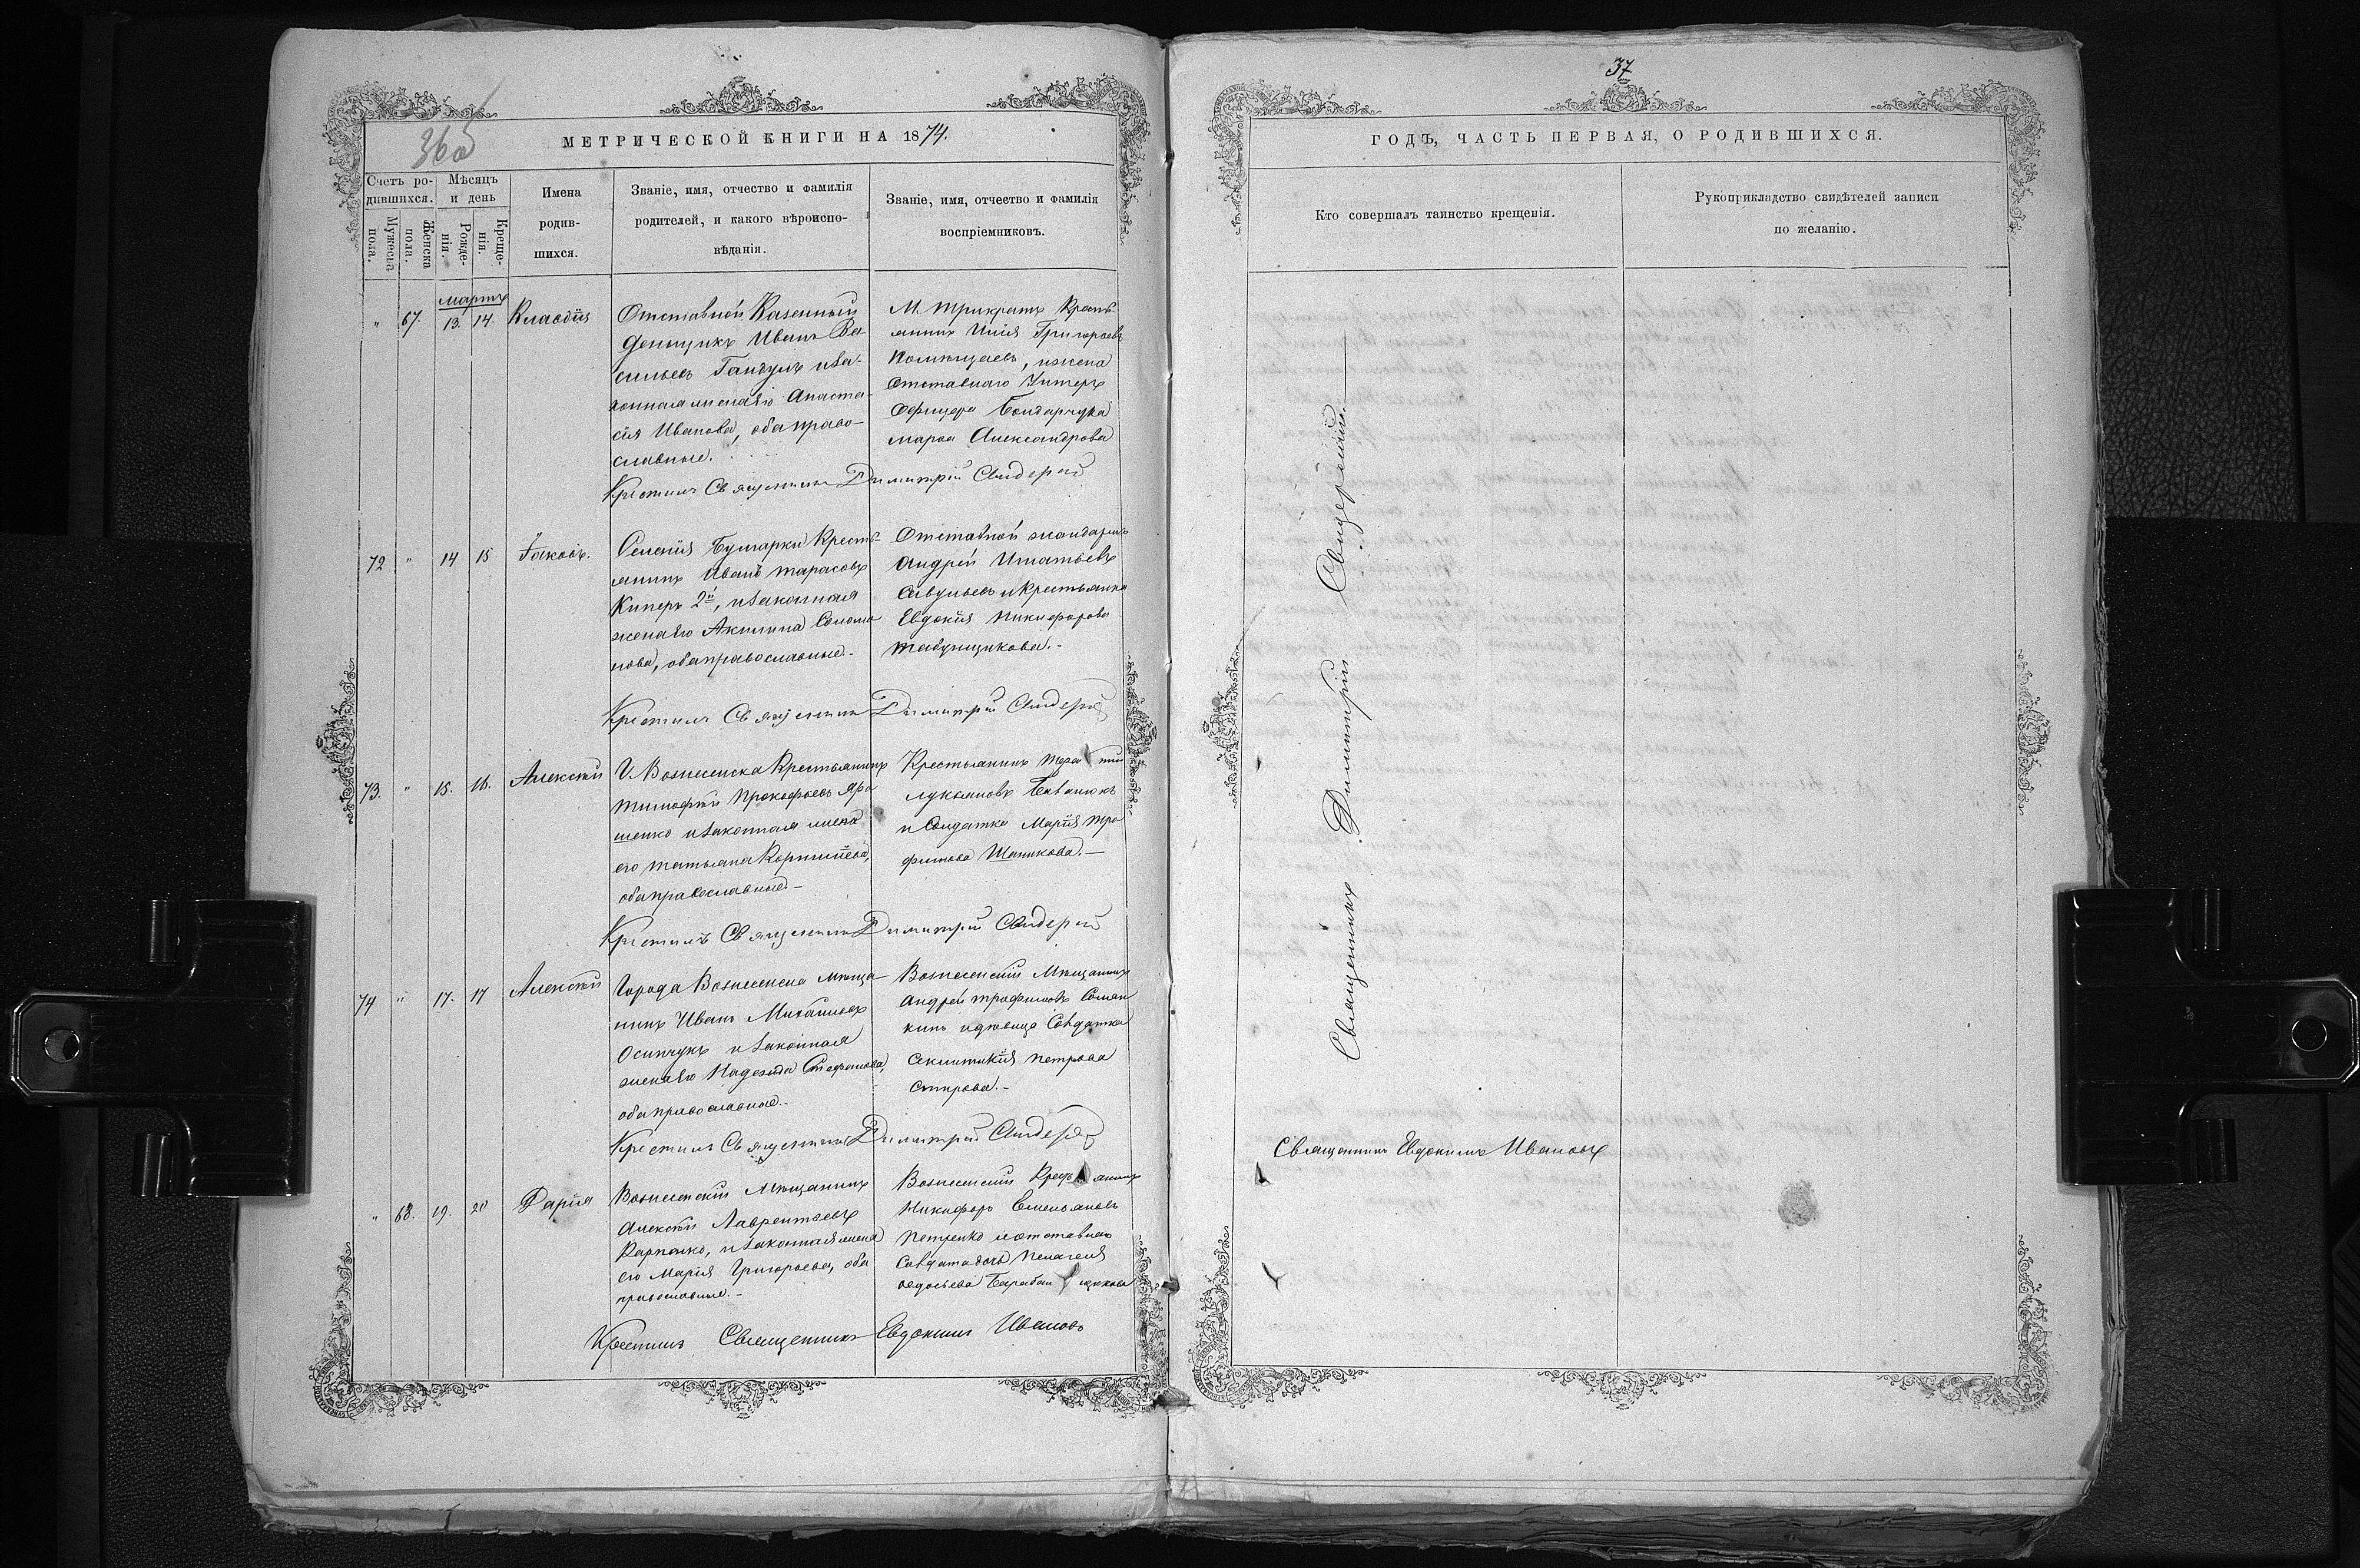 37
36об
МЕТРИЧЕСКОЙ КНИГИ НА 1874.
ГОДЪ, ЧАСТЬ ПЕРВАЯ, О РОДИВШИХСЯ.
Счетъ ро-
дившихся.
Мужеска
пола.
Женска
пола.
Мѣсяцъ
и день
Рожде-
нія.
Креще-
нія.
Имена
родив-
шихся.
Званіе, имя, отчество и фамилія
родителей, и какого вѣроиспо-
вѣданія.
Званіе, имя, отчество и фамилія
воспріемниковъ.
Кто совершалъ таинство крещенія.
Рукоприкладство свидѣтелей записи
по желанію.
мартъ
" 67. 13. 14. Клавдія
Отставной Казенный
деньщикъ Иванъ Ва-
сильевъ Гандулъ и за-
конная жена его Анаста-
сія Иванова, оба право-
славные.
М. Трикратъ Кресть-
янинъ Илія Григорьевъ
и жена
отставнаго Унтеръ
Офицера Бондарчука
Марѳа Александрова
Крестилъ Священникъ Димитрій Свидерскій
72 " 14 15 Іаковъ.
Селенія Булгарки Кресть-
янинъ Иванъ Тарасовъ
Киперъ 2й, и законная
жена его Акилина Соломо-
нова, оба православные.-
Отставной жандармъ
Андрей Игнатьевъ
Савульевъ и Крестьянка
Евдокія Никифорова
Табунщикова.-
Крестилъ Священникъ Димитрій Свидерскій
73. " 15. 16. Алексѣй
Г. Вознесенска Крестьянинъ
Тимофѣй Прокофьевъ Яро-
шенко и законная жена
его Татьяна Корнилiева,
оба православные.-
Крестьянинъ
Лукьяновъ
и Солдатка Марія Тро-
фимова Шаликова.-
Крестилъ Священникъ Димитрій Свидерскій
74 " 17. 17 Алексѣй
Города Вознесенска мѣща-
нинъ Иванъ Михайловъ
Осипчукъ и законная
жена его Надежда Стефанова,
оба православные.-
Вознесенскій Мѣщанинъ
Андрей Трофимовъ Семен-
кинъ и вдовица Солдатка
Секлитикія Петрова
Крестилъ Священникъ Димитрій Свидерскій
" 68. 19. 20 Дарія
Вознесенскій Мѣщанинъ
Алексѣй Лаврентьевъ
Карпенко, и законная жена
его Марія Григорьева, оба
православные.-
Вознесенскій Крестьянинъ
Никифоръ Емельяновъ
Петренко и отставнаго
Солдата дочь Пелагея
Ѳедосьева Барабанщикова
Крестилъ Священникъ Евдокимъ Ивановъ
Священникъ Димитрій Свидерскій
Священникъ Евдокимъ Ивановъ